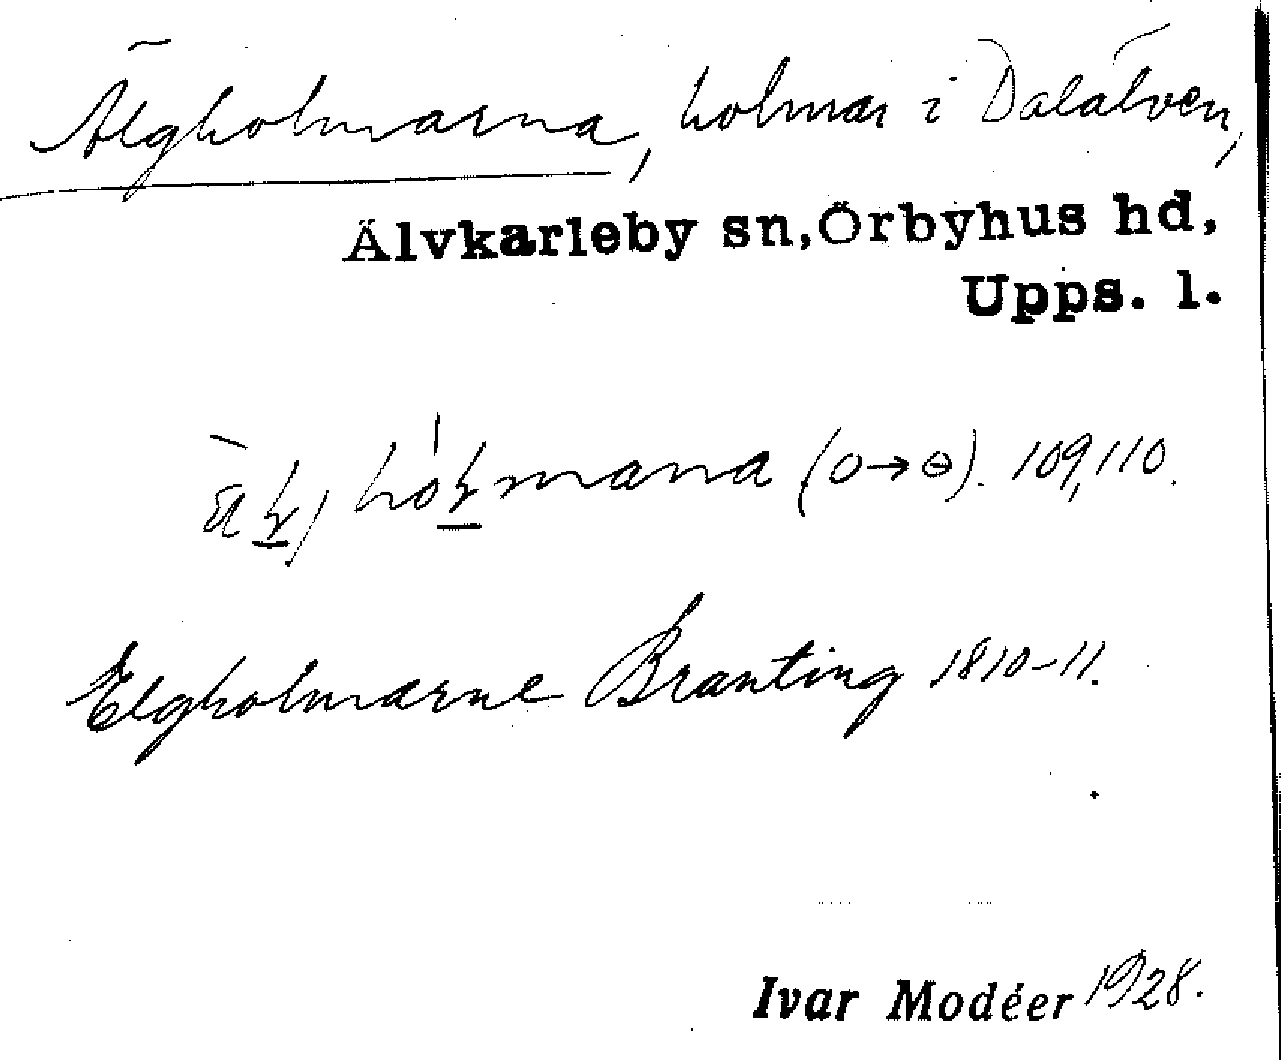 Älgholmarna, holmar i Dalälven,
Älvkarleby sn, Örbyhus hd,
Upps. l.
(o→ɵ). 109, 110.
Elgholmarne Branting 1810-11.
Ivar Modéer 1928.